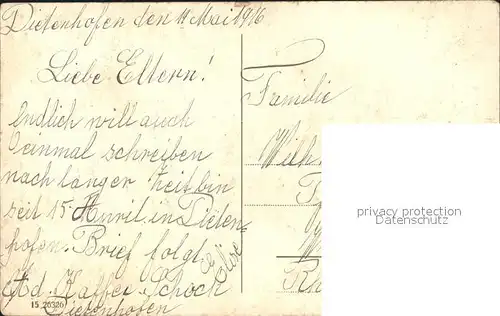 Dietenhofen den 11 Mai 1916
Liebe Eltern!
Endlich will auch
einmal schreiben
nach langer Zeit bin
seit 15. April in Dieten-
hofen. Brief folgt
Elise
Ad. Kaffee Schoch
Dietenhofen
15 26326
Familie
Wilh
privacy protection
Datenschutz